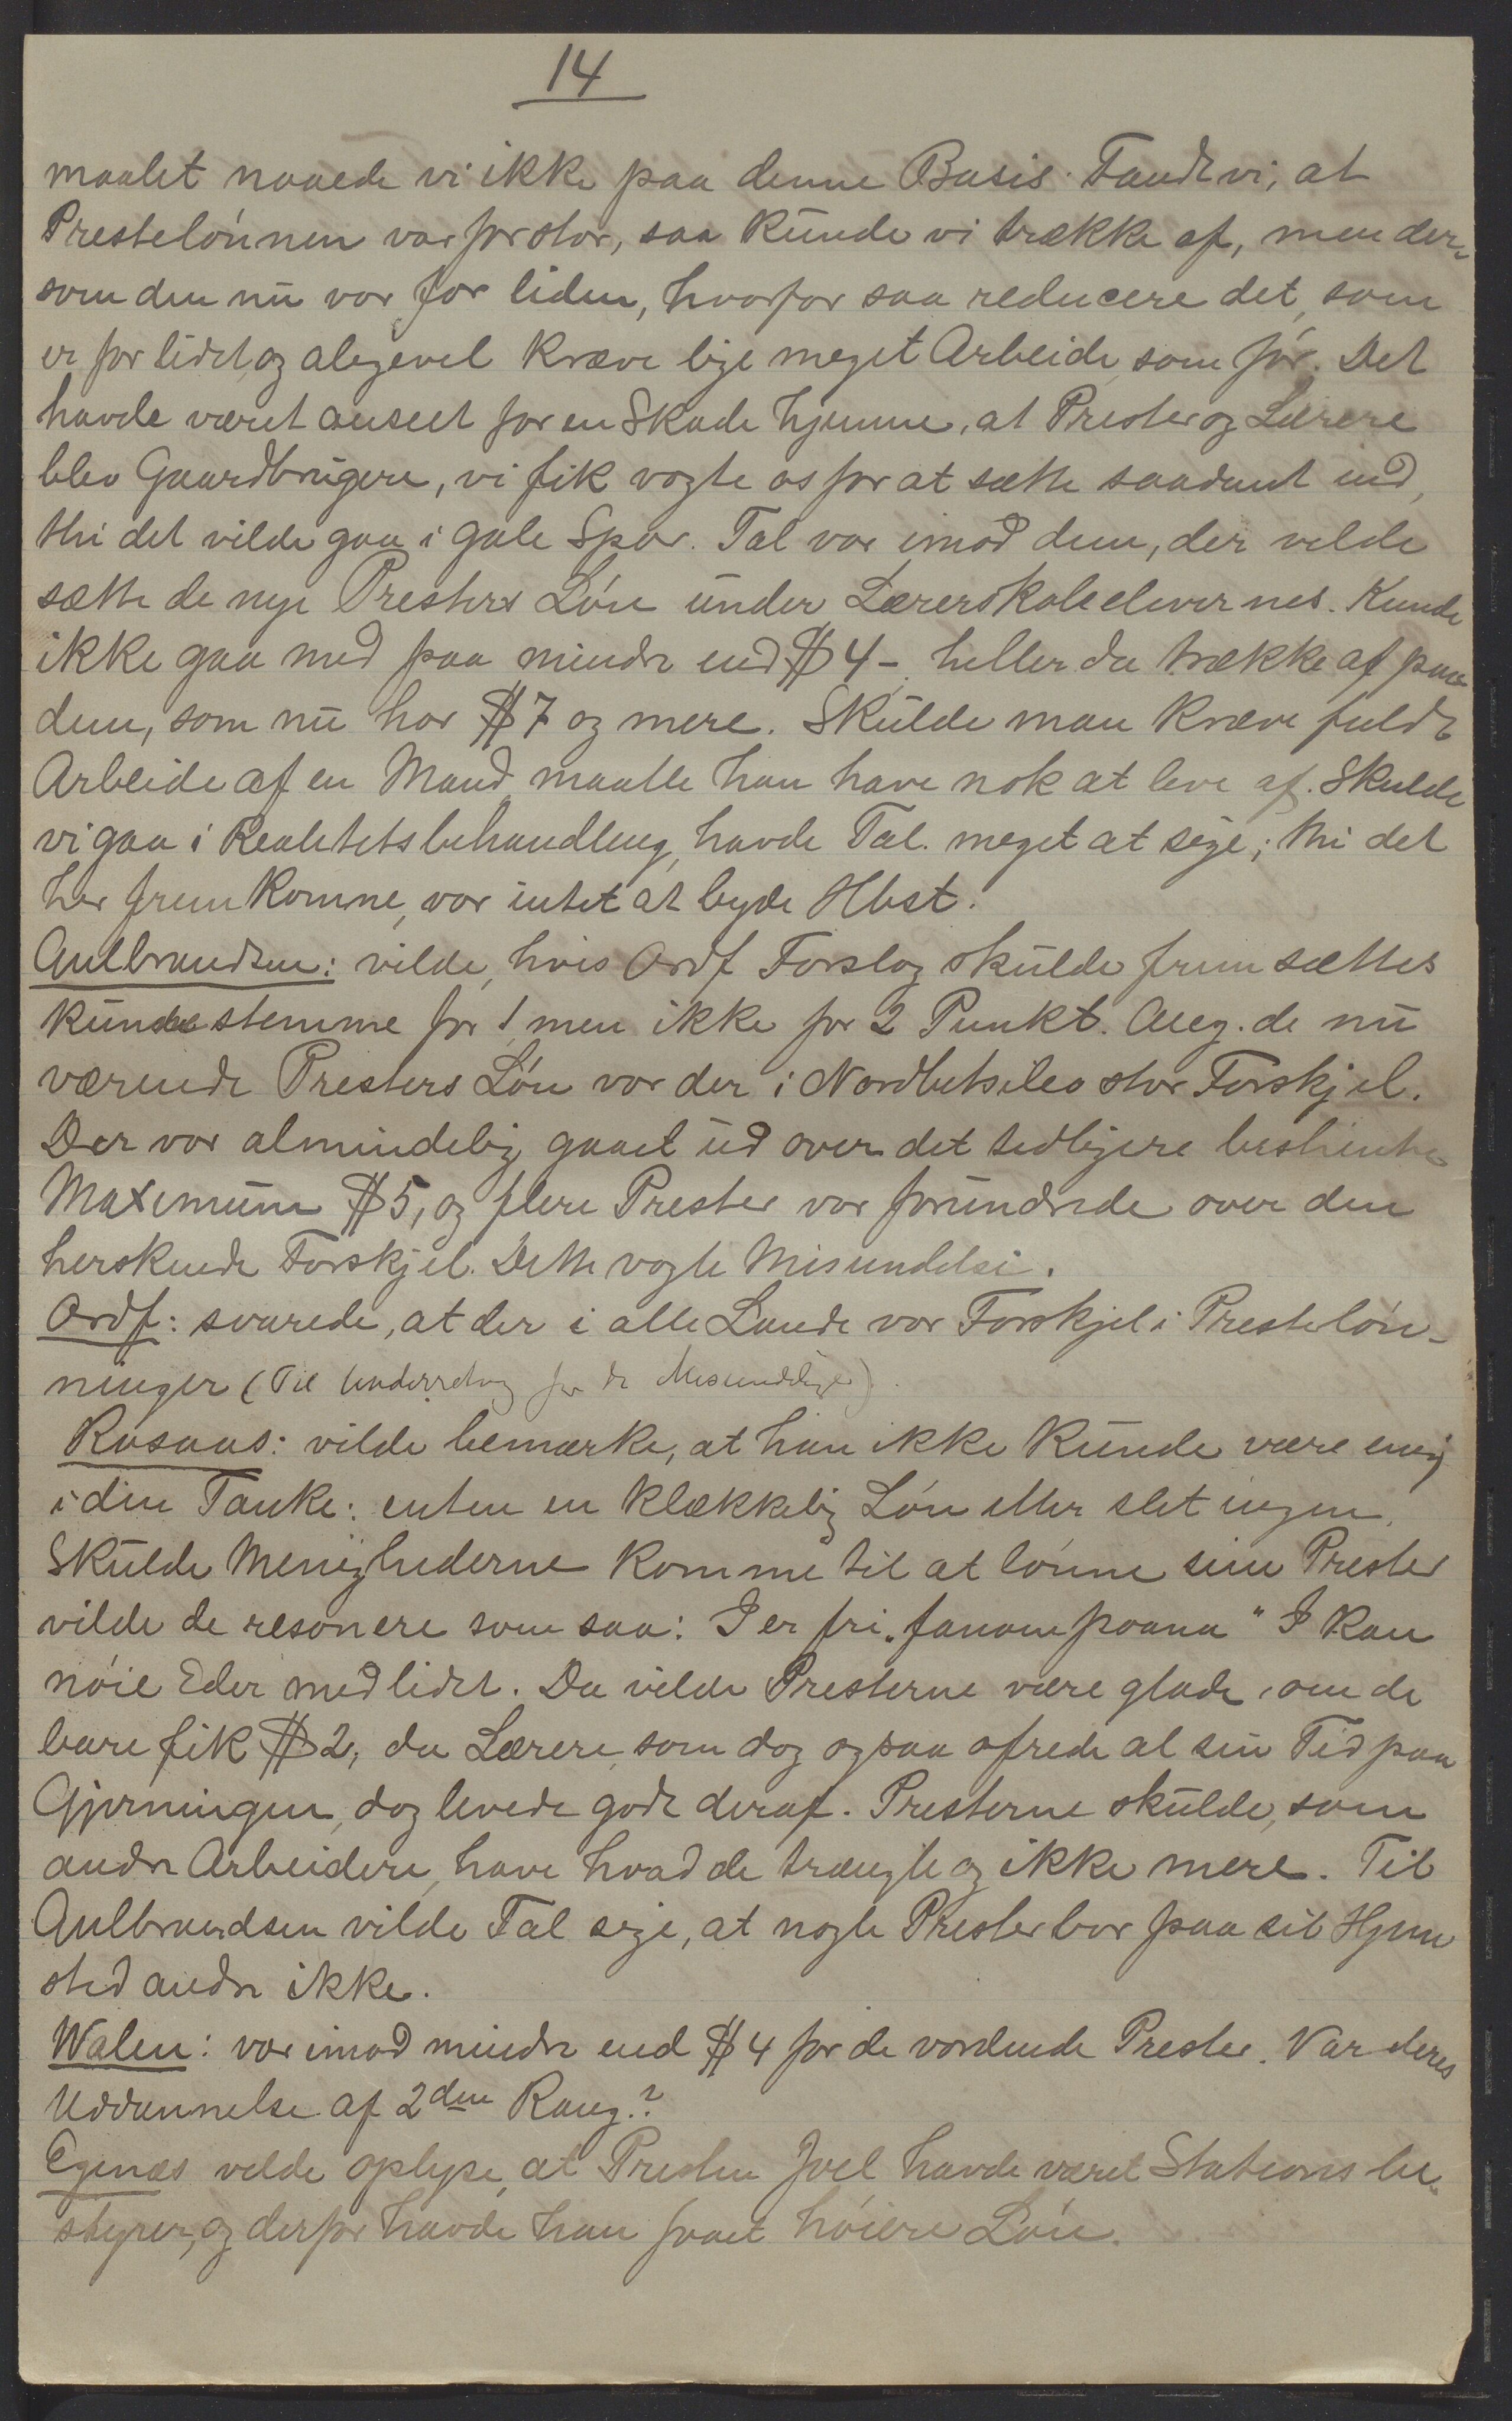 14
maalet naaede vi ikke paa denne Basis. Fandt vi, at
Prestelønnen var for stor, saa kunde vi trække af, men der-
som den nu var for liden, hvorfor saa reducere det, som
er for lidet, og alegevel kræve lige meget Arbeide som før. Det
havde været anseet for en Skade hjemme, at Prester og Lærere
blev Gaardbrugere, vi fik vogte os for at sætte saadant ind,
thi det vilde gaa i gale Spor. Tal var imod dem, der vilde
sætte de nye Presters Løn under Lærerskoleelevernes. Kunde
ikke gaa med paa mindre end $ 4 -, heller da trække af paa
dem, som nu har $ 7 og mere. Skulde man kræve fuldt
Arbeide af en Mand, maatte han have nok at leve af. Skulde
vi gaa i Realitetsbehandling, havde Tal. meget at sige; thi det
her fremkomne, var intet at byde Hbst.
Gulbrandsen: vilde, hvis Ordf Forslag skulde fremsættes
kunde stemme for 1 men ikke for 2 Punkt. Ang. de nu
værende Presters Løn var der i Nordbetsileo stor Forskjel.
Der var almindelig gaaet ud over det tidligere bestemte
Maximum $ 5, og flere Prester var forundrede over den
herskende Forskjel. Dette vagte Misundelse.
Ordf: svarede, at der i alle Lande var Forskjel i Prestløn-
ninger (Til Underretning for de Misundelige)
Rosaas: vilde bemærke, at han ikke kunde være enig
i den Tanke: enten en klækkelig Løn eller slet ingen.
Skulde Menighederne komme til at lønne sine Prester
vilde de resonere som saa: I er fri "fanompoana" I kan
nøie Eder med lidet. Da vilde Presterne være glade, om de
bare fik $ 2, da Lærere, som dog ogsaa ofrede al sin Tid paa
Gjerningen, dog levede godt deraf. Presterne skulde, som
andre Arbeidere, have hvad de trængte og ikke mere. Til
Gulbrandsen vilde Tal sige, at nogle Prester bor paa sit Hjem
sted andre ikke.
Walen: var imod mindre end $ 4 for de vordende Prester. Var deres
Uddannelse af 2den Rang.?
Egenæs vilde oplyse, at Presten Joel havde været Stations be-
styrer, og derfor havde han faaet høiere Løn.